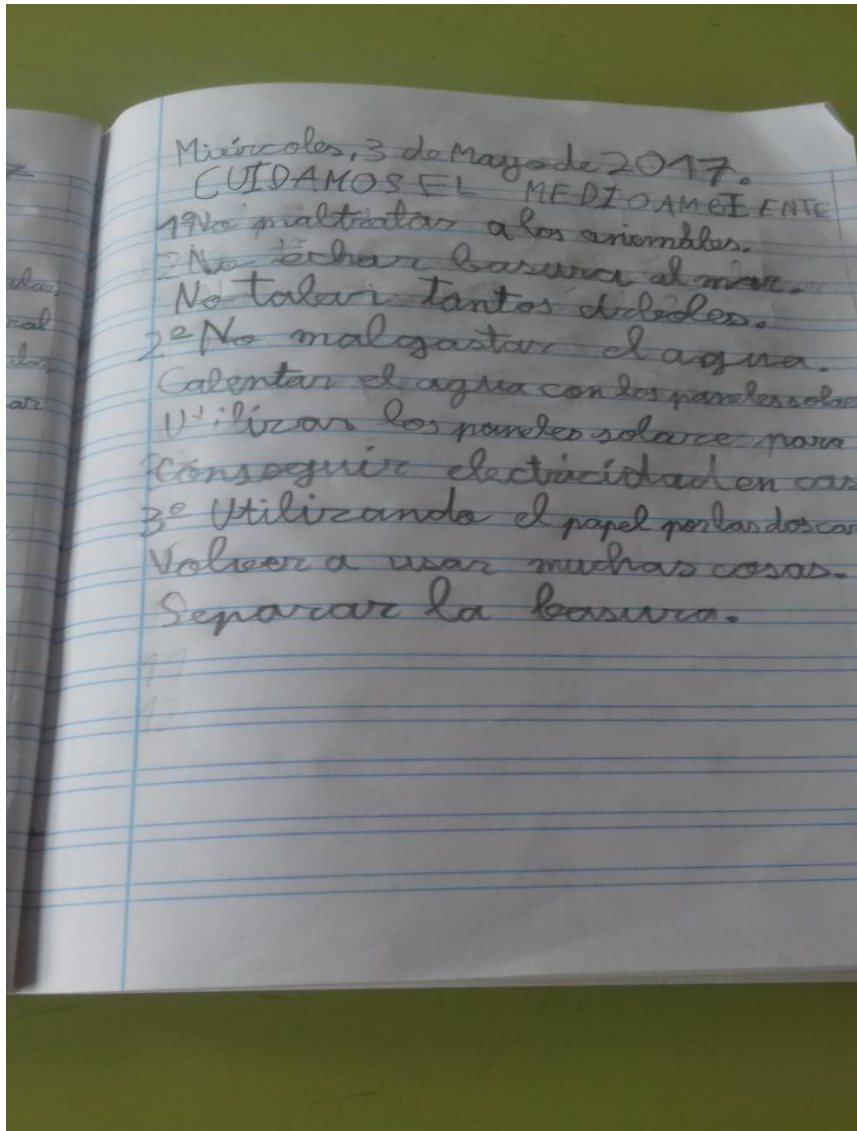 Miércoles, 3 de Mayo de 2017.
CUIDAMOS EL MEDIOAMBIENTE
1º No maltratar a los
2 No echar basura al mar.
No talar tantos
2º No malgastar el agua.
Calentar el agua con los paneles solare
Utilizar los paneles solare para
conseguir electricidad en cas
3º Utilizando el papel por las dos car
Volver a usar muchas cosas.
Separar la basura.
11
12
ral
ar